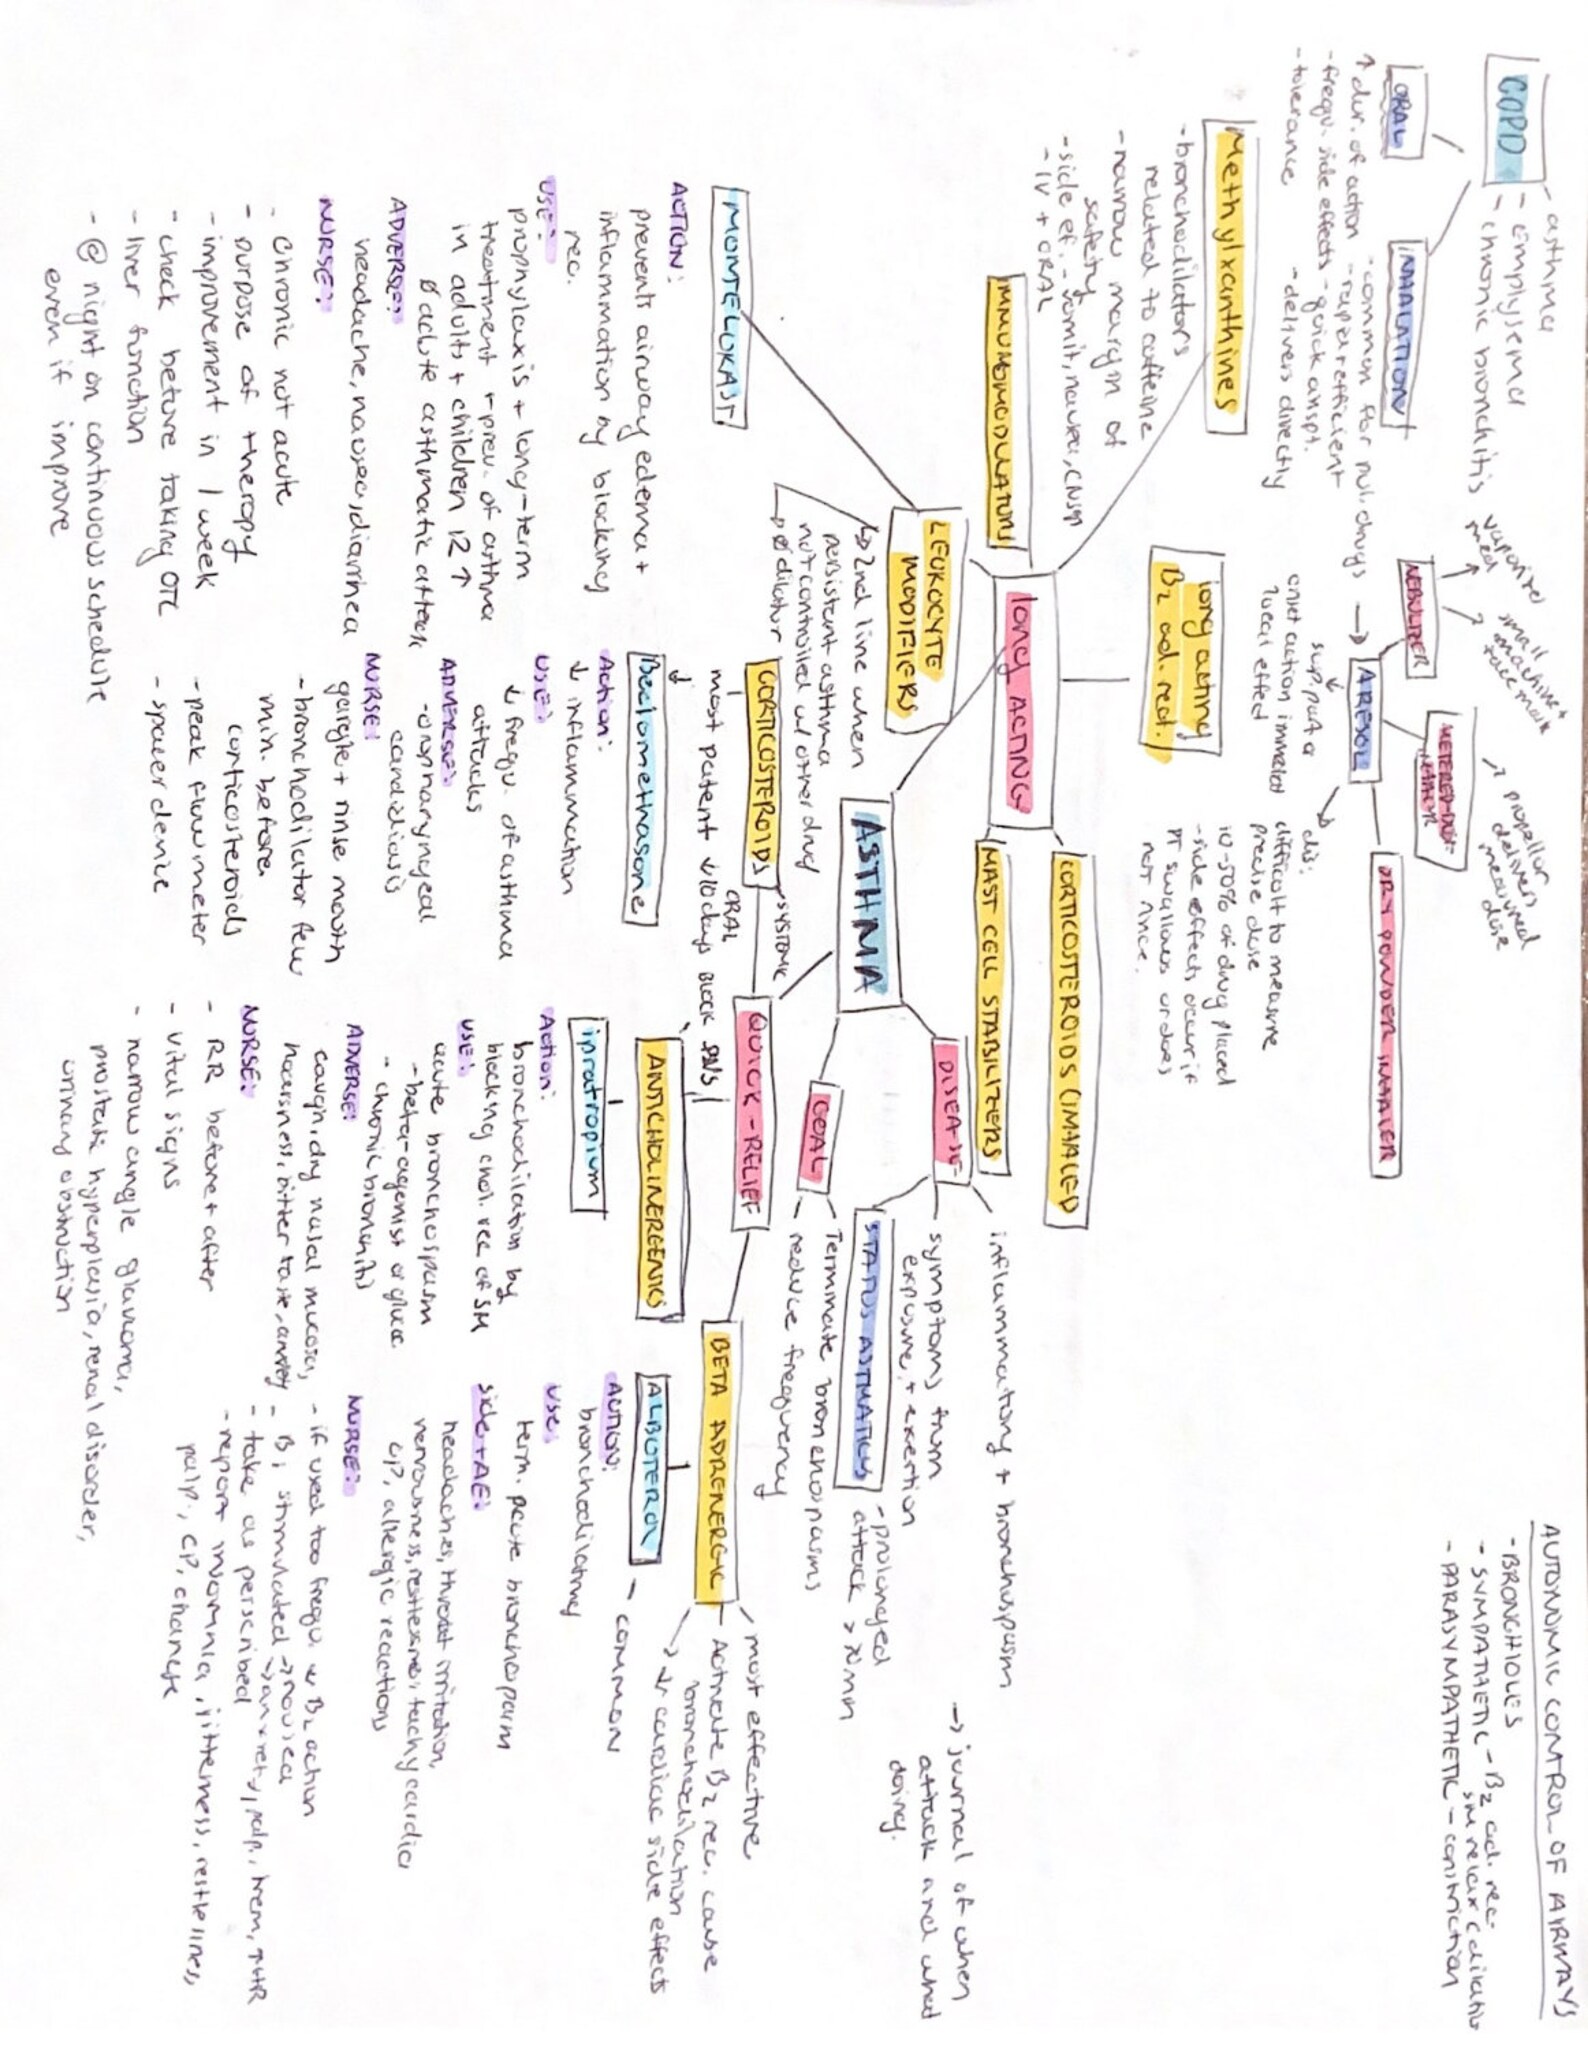 COPD
- asthma
- emplysema
- chronic bronchitis
ORAL
↑ dur. of action
- frequ. side effects
- tolerance
INHALATION
- common for pul. drugs
- rapid + efficient
- quick onspt.
- delivers directly
→ ARESOL
NEBULIZER
vaporized
med
small
machine +
face mask
METERED-DOSE
INHALER
propellor
delivers
measured
dose
DRY POWDER INHALER
onset action immediat
local effect
dis:
difficult to measure
precise dose
10-50% of drug placed
- side effects occur if
PT swallows or does
not rince.
AUTONOMIC CONTROL OF AIRWAYS
- BRONCHIOLES
- SYMPATHETIC - B₂ ad. rec.
sm relax (dilation
- PARASYMPATHETIC - constriction
Methylxanthines
- bronchodilators
related to caffeine
- narrow margin of
safety
- side ef. - vomit, nausea, CNS
- IV + ORAL
IMMUNOMODULATORS
long acting
B₂ ad. rect.
LONG ACTING
CORTICOSTEROIDS (INHALED
MAST CELL STABILIZERS
LEUKOCYTE
MODIFIERS
↳ 2nd line when
persistant asthma
not controlled w/ other drug
→ Ø dilator
ASTHMA
DISEASE
inflammatory + bronchospasm
symptoms from
exposure + exertion
→ journal of when
attack and what
doing.
STATUS ASTMATICUS
- prolonged
attack >
GOAL
- Terminate bronchospasms
- reduce frequency
MONTELUKAST
ACTION:
prevents airway edema +
inflammation by blocking
rec.
USE:
prophylaxis + long-term
treatment + prev. of asthma
in adults + children 12 ↑
Ø acute asthmatic attack
ADVERSE:
headache, nausea, diarrhea
NURSE:
- chronic not acute
- purpose of therapy
- improvement in 1 week
- check before taking OTC
- liver function
- @ night on continuous schedule
even if improve
CORTICOSTEROIDS
most patent
↓ 10 days
ORAL
SYSTEMIC
Beclomethasone
Action:
↓ inflammation
USE:
↓ frequ. of asthma
attacks
ADVERSE:
- orophary­ngeal
candidiasis
NURSE:
gargle + rinse mouth
- bronchodilator few
min. before
corticosteroids
- peak flow meter
- spacer device
QUICK-RELIEF
BLOCK PNS
ANTICHOLINERGENICS
ipratropium
Action:
bronchodilation by
blocking chol. rec of SM
USE:
acute bronchospasm
- beta-agonist or gluco
- chronic bronchitis
ADVERSE:
cough, dry nasal mucosa,
hoarsness, bitter taste, anxiety
NURSE:
- RR before + after
- vital signs
- narrow angle glaucoma,
prostatic hyperplasia, renal disorder,
urinary obstruction
BETA ADRENERGIC
- most effective
- Activate B₂ rec. cause
bronchodilation
→ ↓ cardiac side effects
ALBUTEROL - common
ACTION:
bronchodilating
USE:
term. acute bronchospasm
side + AE:
headaches, throat irritation,
nervousness, restlessness, tachycardia
CP, allergic reactions
NURSE:
- if used too frequ. ↓ B₂ action
- B₁ stimulated → nausea
→ anxiety, palp., trem, ↑HR
- take as perscribed
- report insomnia, jitterness, restlesness,
palp., CP, change